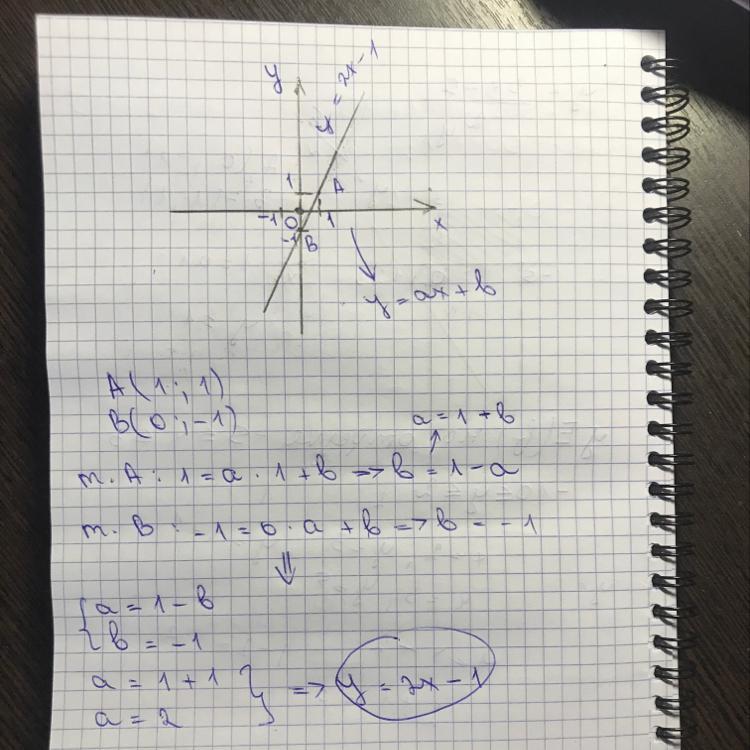 y
y = 2x-1
1
A
-1
0
1
x
-1
B
y = ax + b
A(1;, 1)
B(0;, -1)
a = 1 + b
т. A: 1 = a · 1 + b => b = 1 - a
т. B: -1 = 0 · a + b => b = -1
⇓
{ a = 1 - b
b = -1
a = 1 + 1 } => y = 2x - 1
a = 2